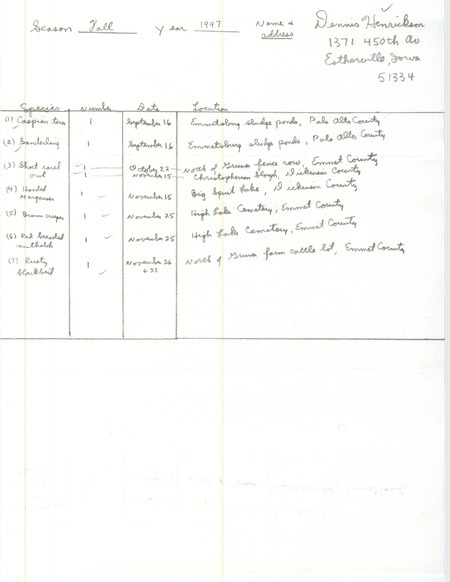 Season Fall year 1997 Name & address Dennis Henrickson
1371 450th Av
Estherville, Iowa
51334
Species Number Date Location
(1) Caspian tern 1 September 16 Emmetsburg sludge ponds, Palo Alto County
(2) Sanderling 1 September 16 Emmetsburg sludge ponds, Palo Alto County
(3) Short eared 1 October 22 North of Gruver fence row, Emmet County
owl 1 November 15 Christopherson Slough, Dickinson County
(4) Hooded 1 November 15 Big Spirit Lake, Dickinson County
Merganser
(5) Brown creeper 1 November 25 High Lake Cemetery, Emmet County
(6) Red breasted 1 November 25 High Lake Cemetery, Emmet County
nuthatch
(7) Rusty 1 November 26 North of Gruver farm cattle lot, Emmet County
blackbird + 27